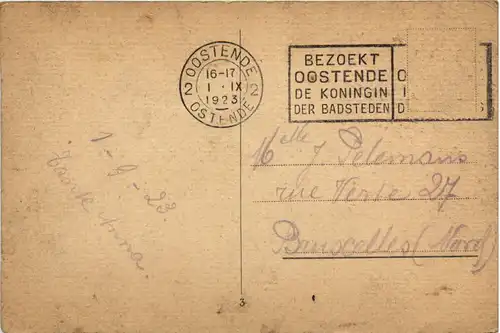 OOSTENDE
2 16-17 2
1 IX
1923
OSTENDE
BEZOEKT
OOSTENDE
DE KONINGIN
DER BADSTEDEN
O
D S
1-9-23.
Anna.
Melle J Pelemans
rue Verte 27
Bruxelles (Nord)
3